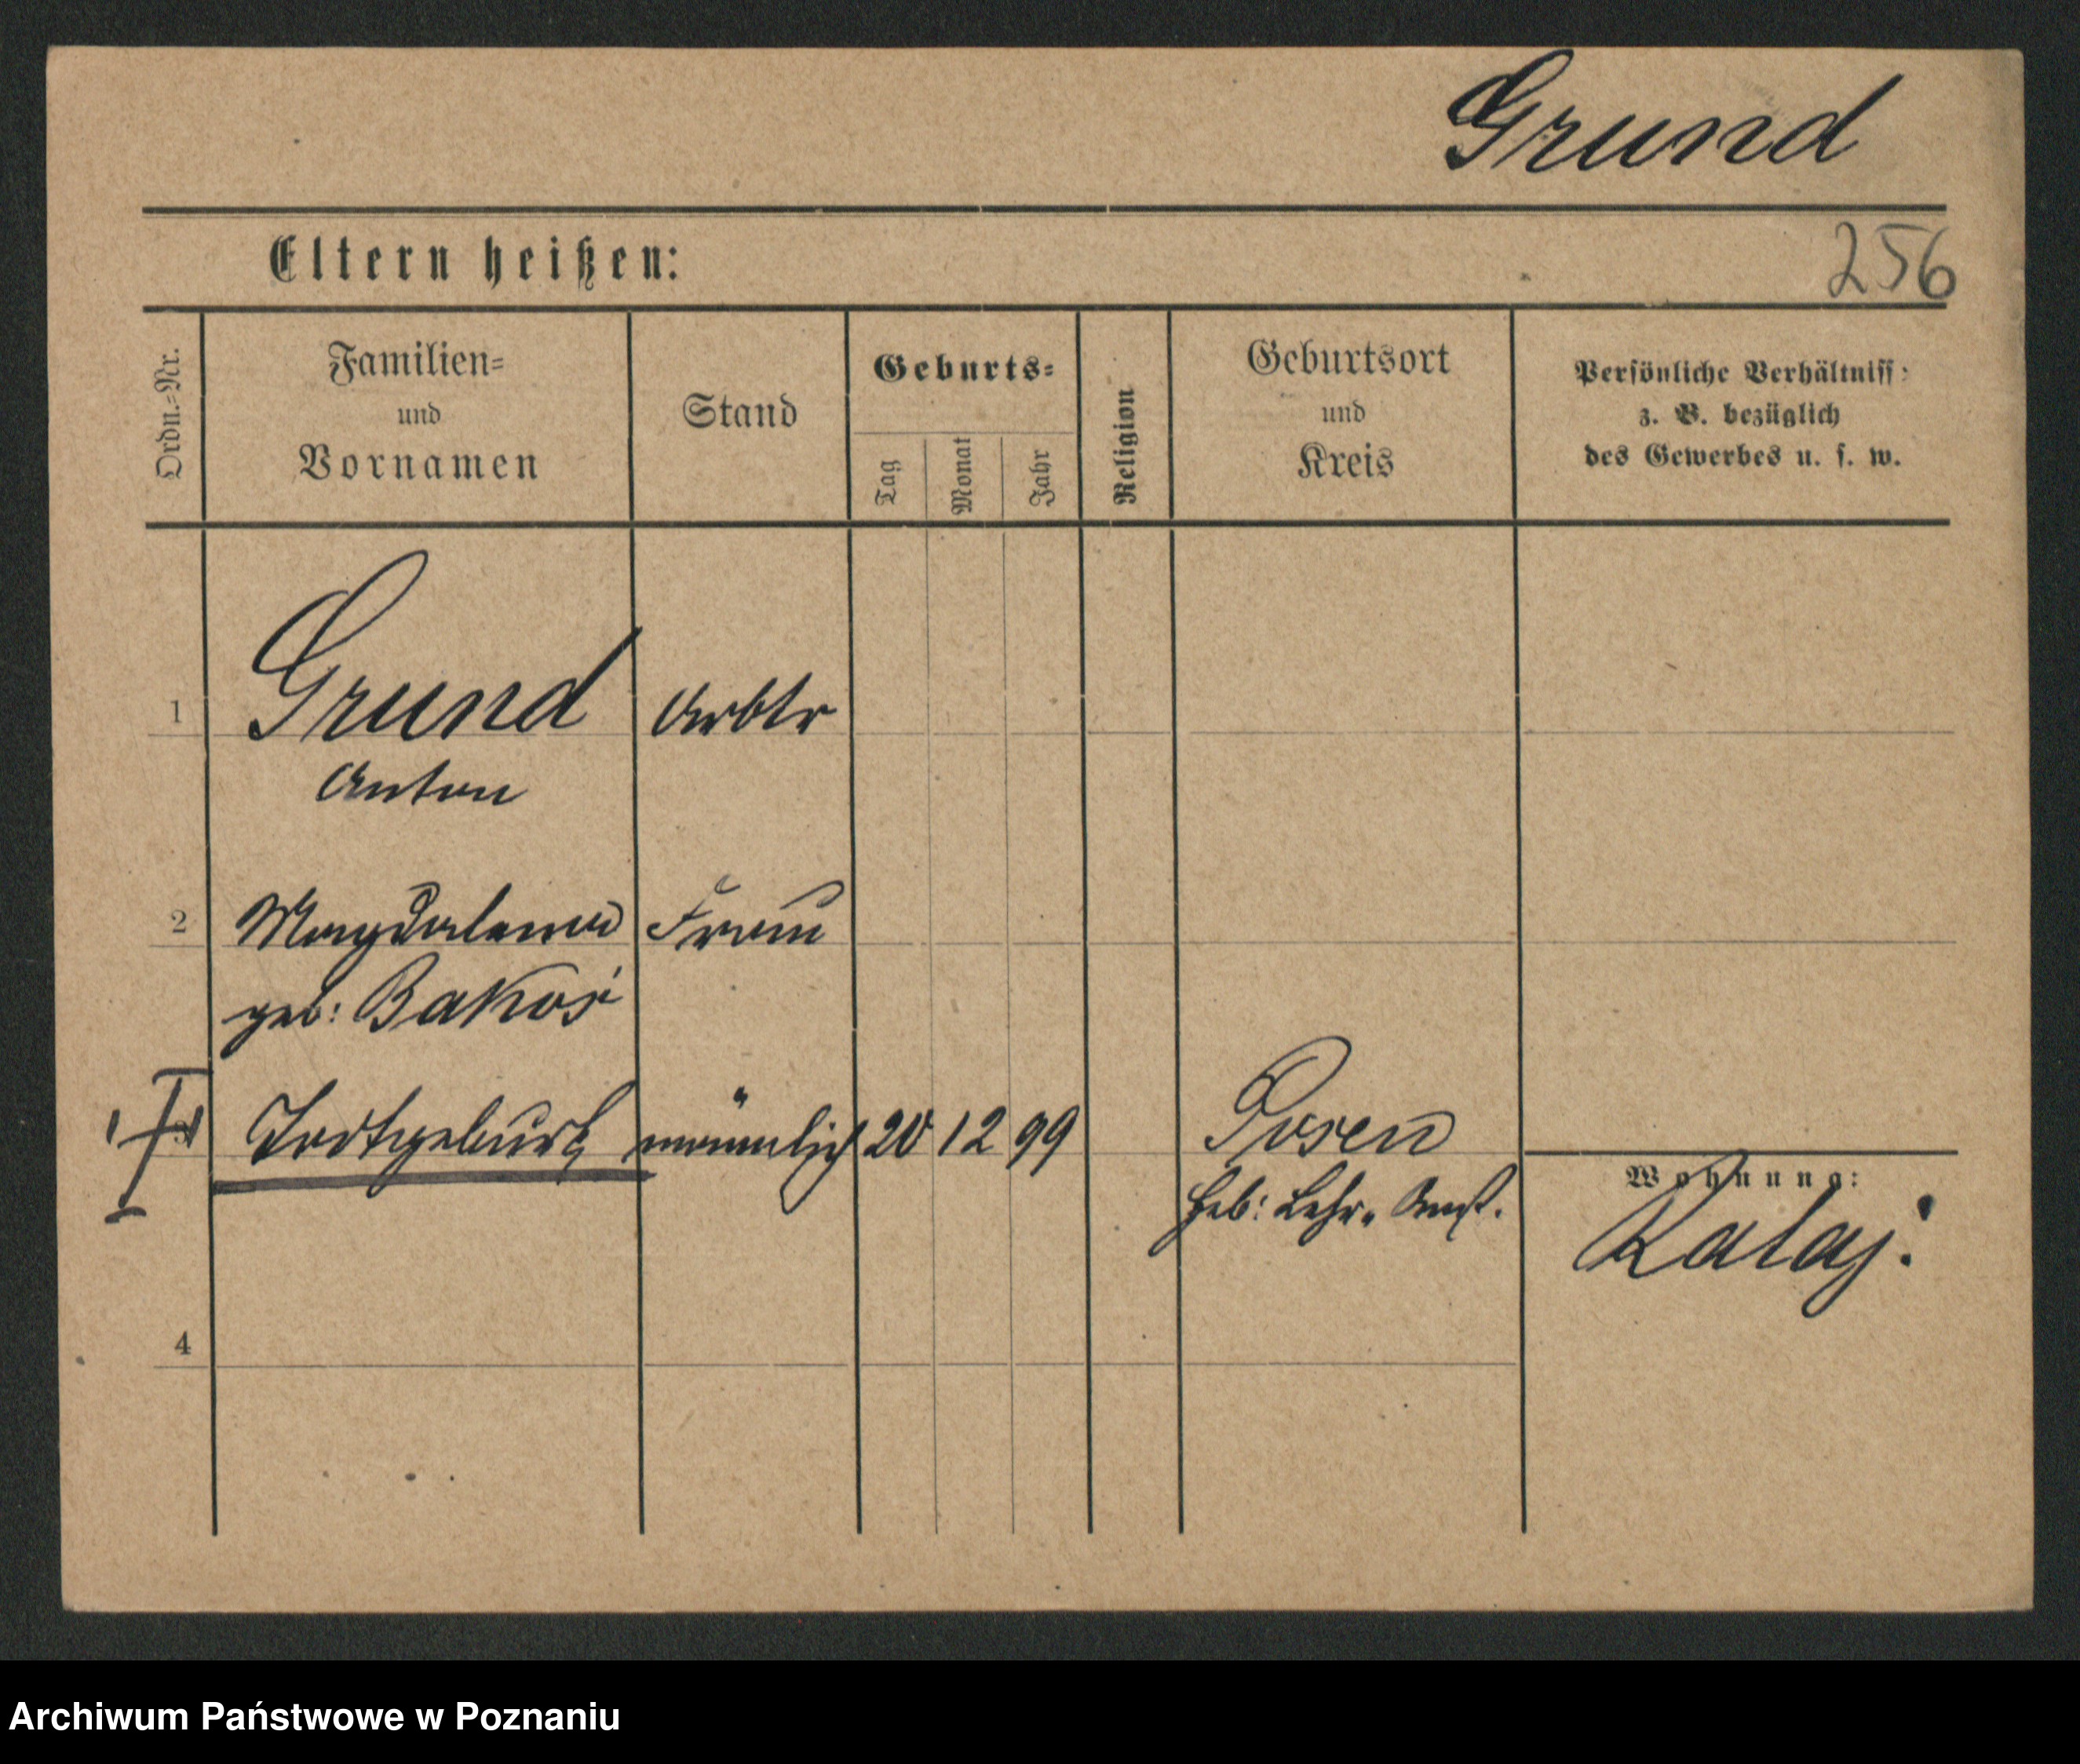 Grund
Eltern heißen:
256
Ordn.=Nr.
Familien=
und
Vornamen
Stand
Geburts=
Tag
Monat
Jahr
Religion
Geburtsort
und
Kreis
Persönliche Verhältniss:
z. B. bezüglich
des Gewerbes u. s. w.
1 Grund Arbtr
Anton
2 Magdalena Frau
geb: Bakoś
Todtgeburt männlich 20 12 99 Posen
Heb: Lehr. Anst.
Wohnung:
Rataj:
4
Archiwum Państwowe w Poznaniu